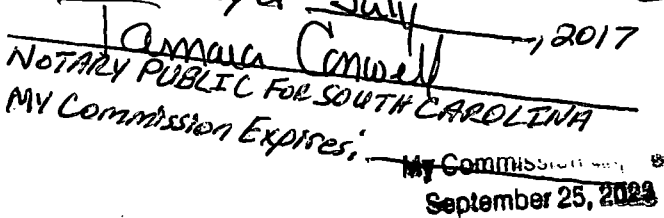 July, 2017
Tamara
NOTARY PUBLIC FOR SOUTH CAROLINA
MY Commission Expires:
My Commission
September 25,